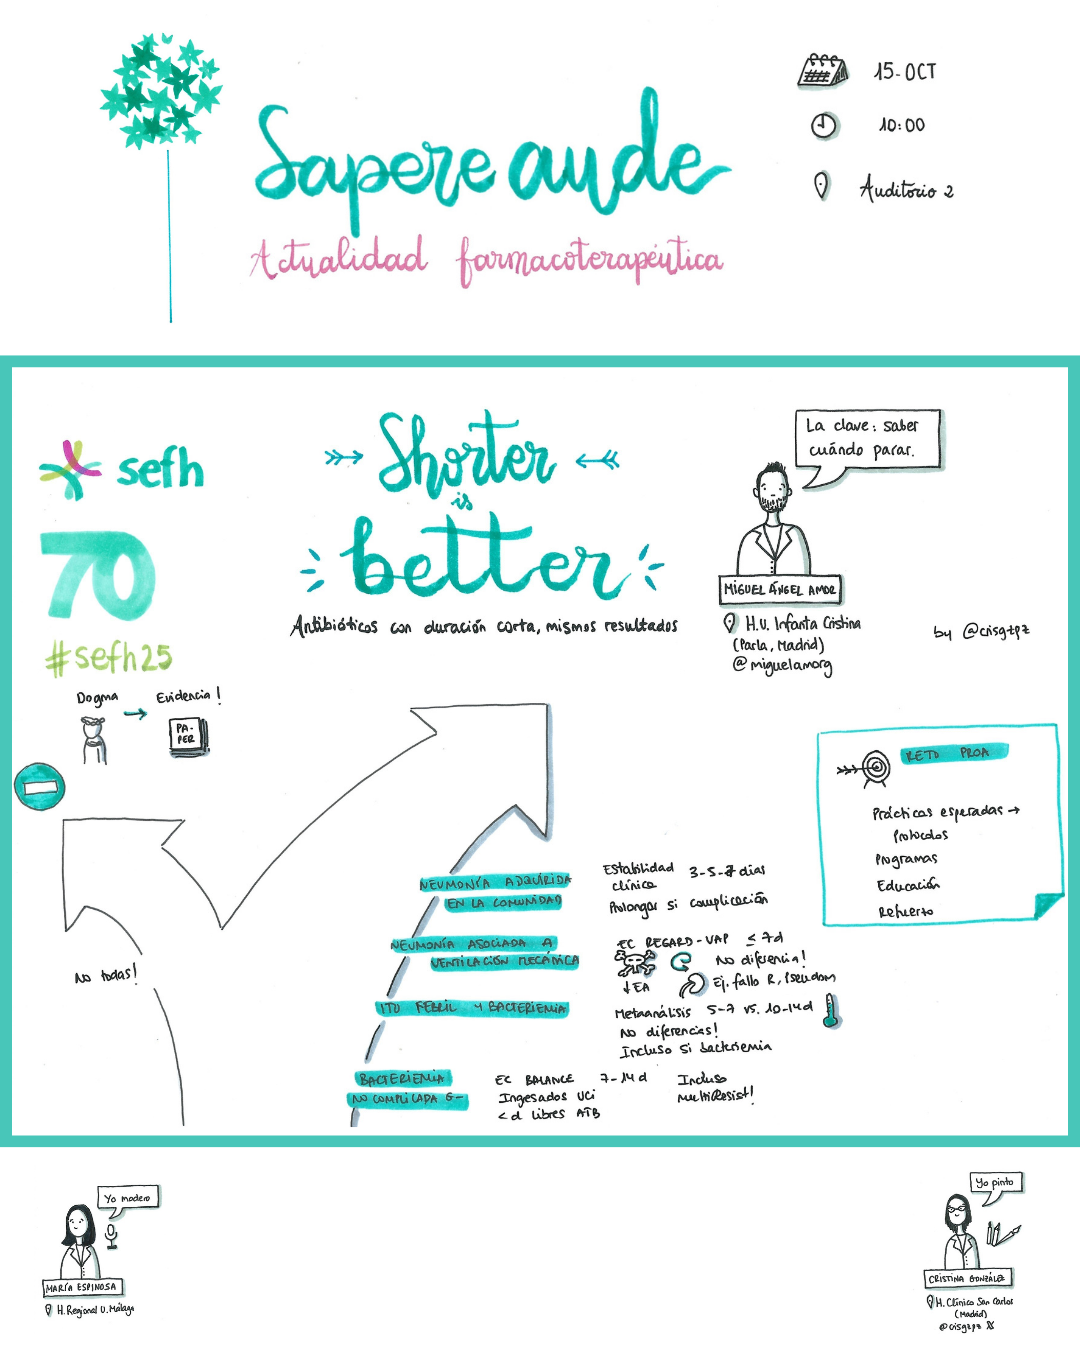 Sapere aude
Actualidad farmacoterapéutica
15-OCT
10:00
Auditorio 2
sefh
70
#sefh25
Shorter
is
better
Antibióticos con duración corta, mismos resultados
La clave: saber
cuándo parar.
MIGUEL ÁNGEL AMOR
H.U. Infanta Cristina
(Parla, Madrid)
@miguelamorg
by @crisgzpz
Dogma
Evidencia!
PA-
PER
No todas!
NEUMONÍA ADQUIRIDA
EN LA COMUNIDAD
Estabilidad
clínica
3-5-7 días
Prolongar si complicación
NEUMONÍA ASOCIADA A
VENTILACIÓN MECÁNICA
EC REGARD-VAP ≤ 7d
No diferencia!
↓EA
Ej. fallo R, Pseudom
ITU FEBRIL Y BACTERIEMIA
Metaanálisis 5-7 vs. 10-14d
No diferencias!
Incluso si bacteriemia
BACTERIEMIA
NO COMPLICADA G-
EC BALANCE 7-14d
Ingresados UCI
<d libres ATB
Incluso
MultiResist!
RETO PROA
Prácticas esperadas →
Protocolos
Programas
Educación
Refuerzo
Yo modero
MARÍA ESPINOSA
H. Regional U. Málaga
Yo pinto
CRISTINA GONZÁLEZ
H. Clínico San Carlos
(Madrid)
@crisgzpz X